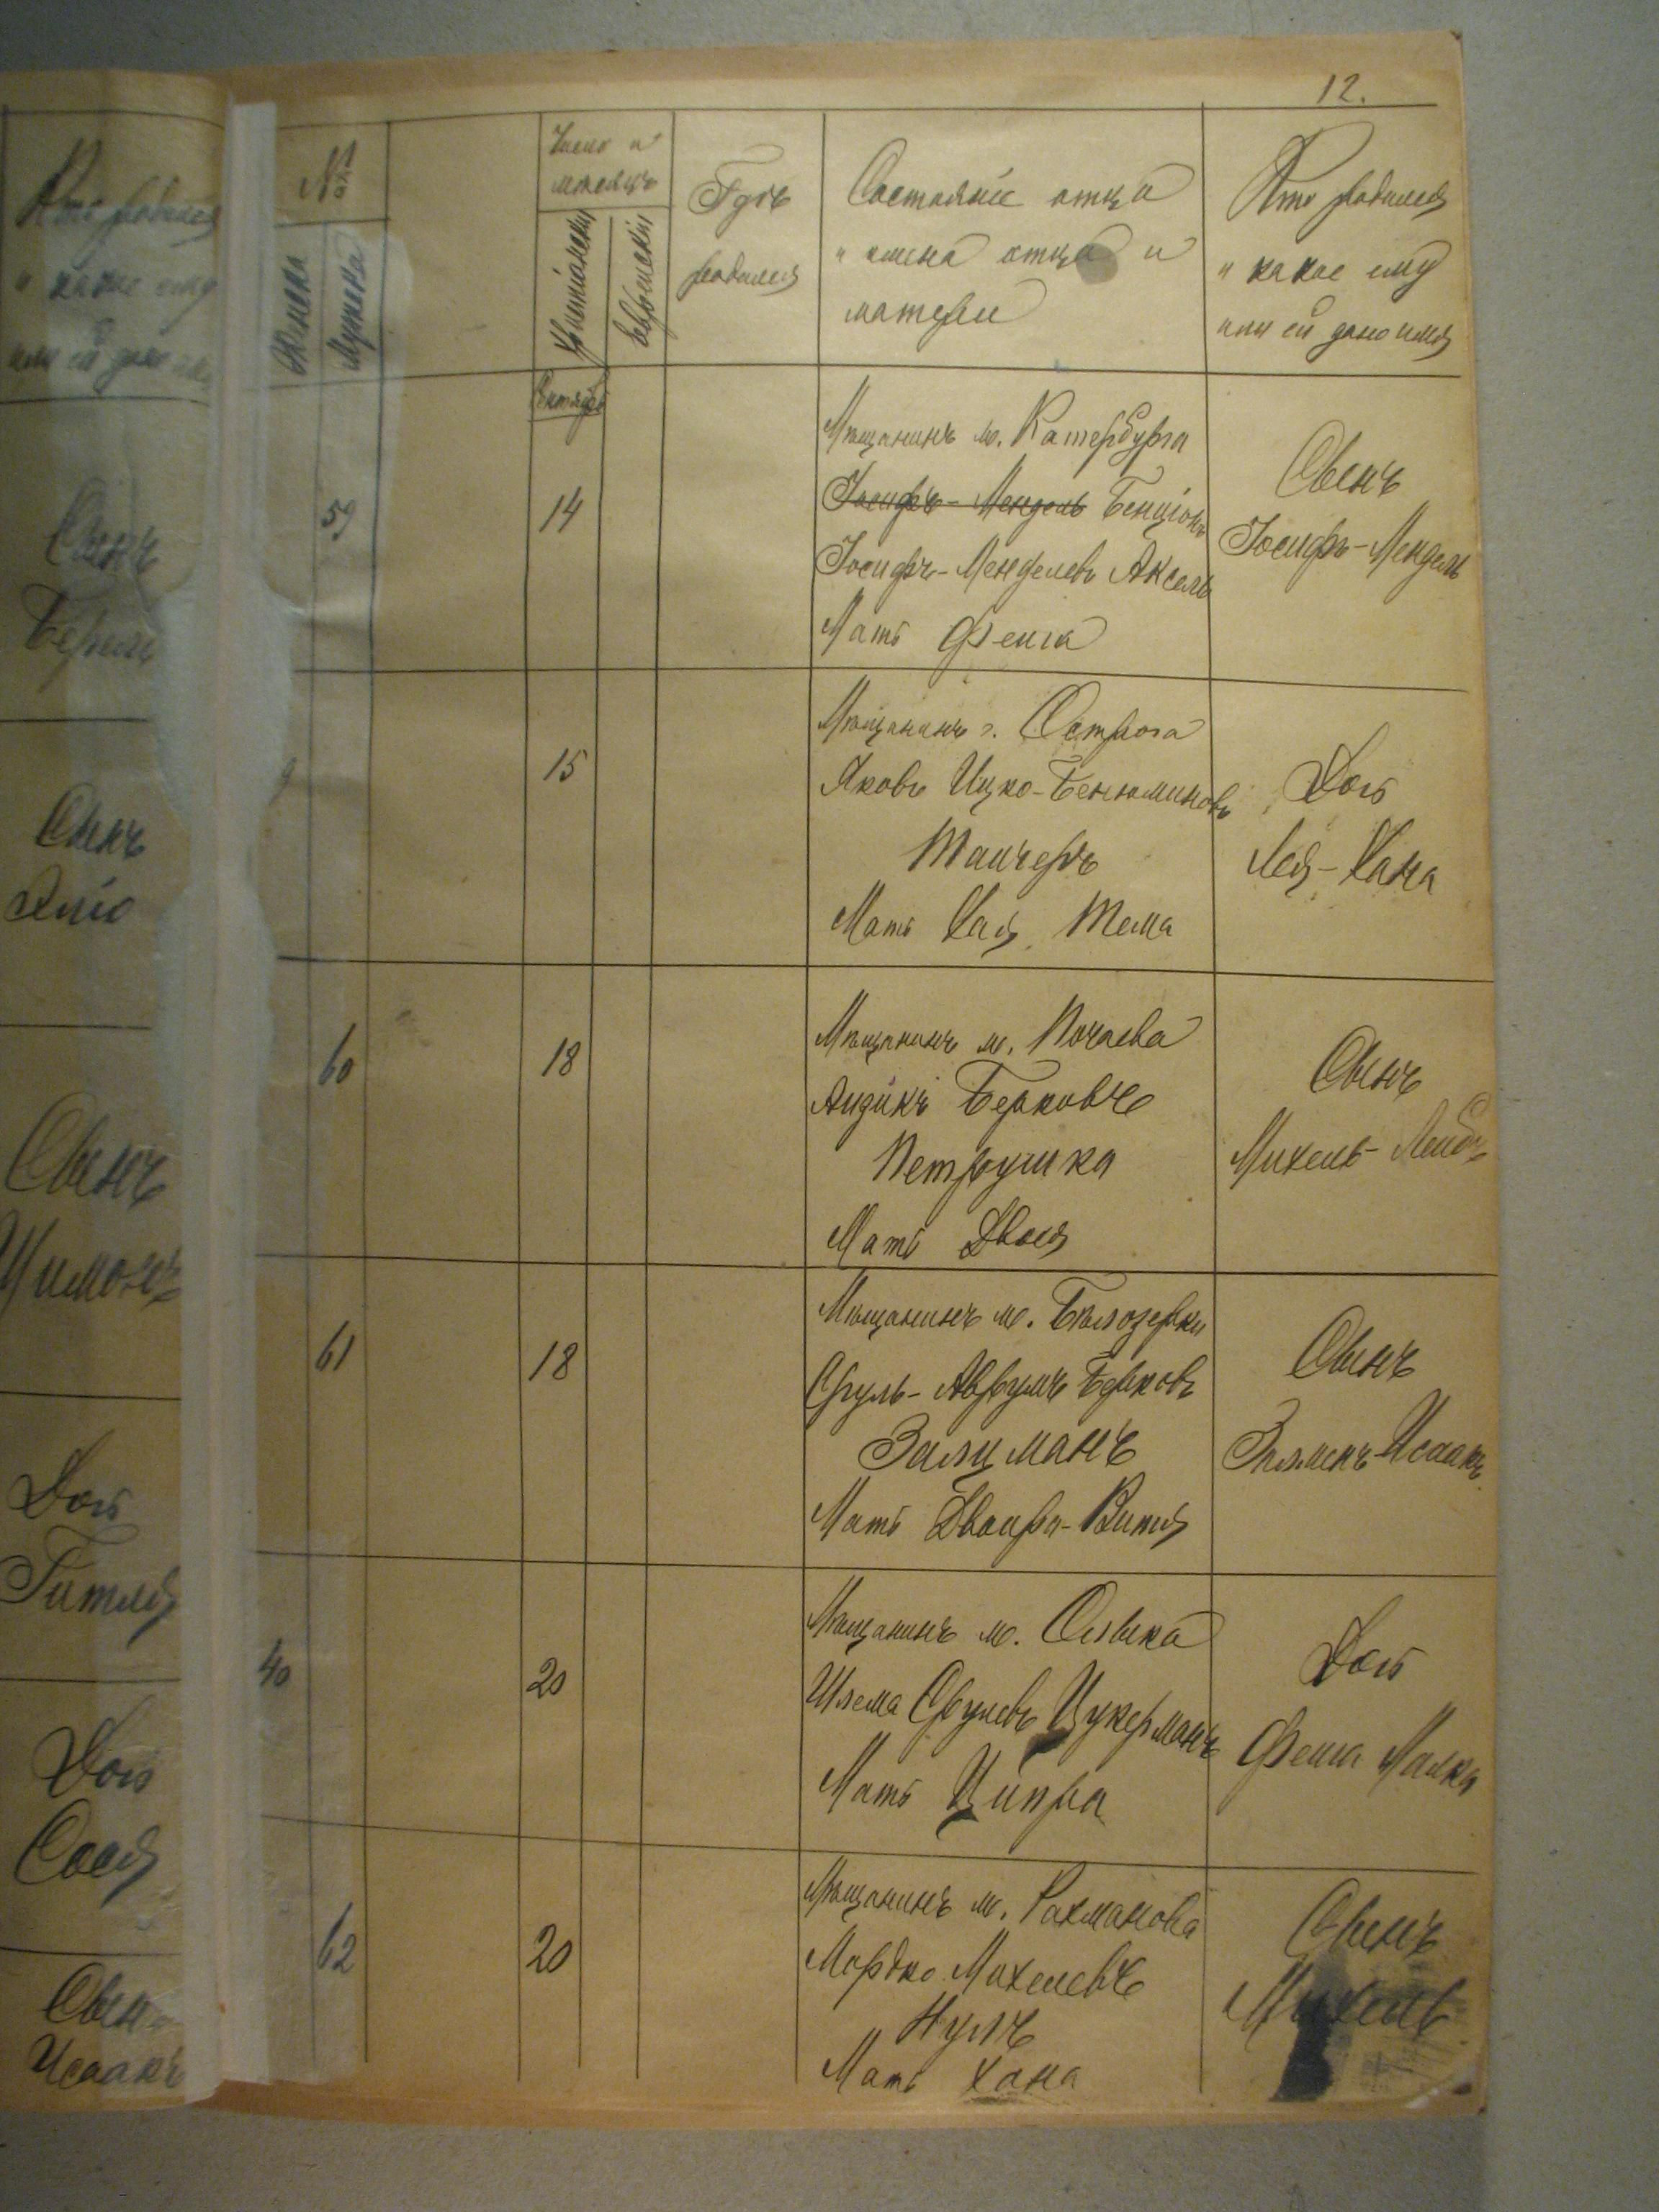 12.
Кто родился
и какое ему
или ей дано имя
Сынъ
Сынъ
Сынъ
Шимонъ
Дочь
Гитля
Дочь
Сося
Сынъ
Исаакъ
№
Женска
Мужска
Число и
месяцъ
Христіянскій
Еврейскій
Гдѣ
родился
Состояніе отца
и имена отца и
матери
Кто родился
и какое ему
или ей дано имя
Октября
59
14
Мѣщанинъ м. Катербурга
Іосифъ-Мендель Бенціонъ
Іосифъ-Менделевъ Аксель
Мать Фейга
Сынъ
Іосифъ-Мендель
15
Мѣщанинъ г. Острога
Яковъ Ицко-Бенюминовъ
Мать Хая Тема
Дочь
Лея-Хана
60
18
Мѣщанинъ м. Почаева
Айзикъ Берковъ
Петрушка
Мать Двося
Сынъ
Михель-Лейбъ
61
18
Мѣщанинъ м. Бѣлозерки
Сруль-Аврумъ Берковъ
Залцманъ
Мать Двойра-Витя
Сынъ
Залменъ-Исаакъ
40
20
Мѣщанинъ м. Олыка
Шлема Срулевъ Цукерманъ
Мать Ципра
Дочь
Фейга Малка
62
20
Мѣщанинъ м. Рахманова
Мордко Михелевъ
Нулъ
Мать Хана
Сынъ
Михель